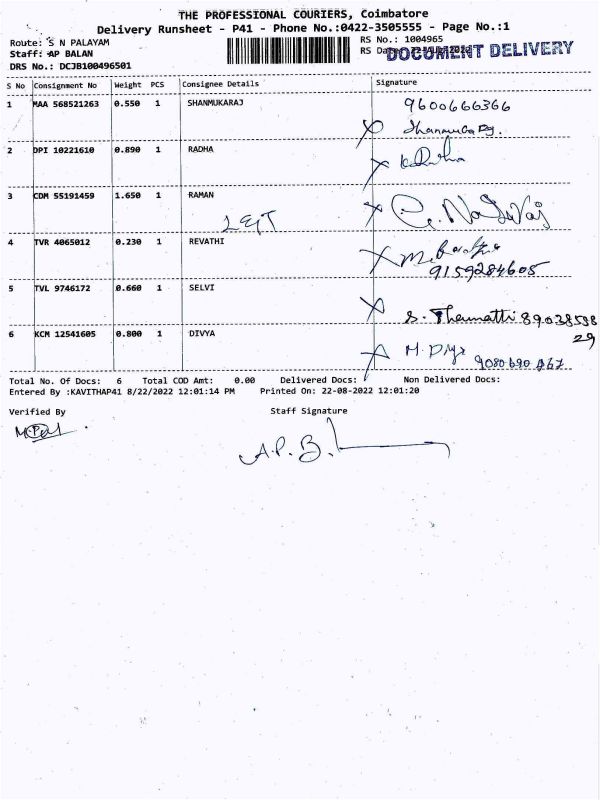 THE PROFESSIONAL COURIERS, Coimbatore
Delivery Runsheet - P41 - Phone No.:0422-3505555 - Page No.:1
Route: S N PALAYAM
RS No.: 1004965
Staff: AP BALAN
RS
DOCUMENT DELIVERY
DRS No.: DCJB100496501
S No Consignment No Weight PCS Consignee Details Signature
1 MAA 568521263 0.550 1 SHANMUKARAJ 9600666366
2 DPI 10221610 0.890 1 RADHA
3 CDM 55191459 1.650 1 RAMAN
4 TVR 4065012 0.230 1 REVATHI
9159284605
5 TVL 9746172 0.660 1 SELVI
S. Thenmathi 89038598
29
6 KCM 12541605 0.800 1 DIVYA
Total No. Of Docs: 6 Total COD Amt: 0.00 Delivered Docs: Non Delivered Docs:
Entered By :KAVITHAP41 8/22/2022 12:01:14 PM Printed On: 22-08-2022 12:01:20
Verified By Staff Signature
A.P.B.